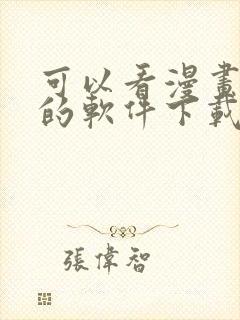 可以看漫畫
的軟件下載
張偉智